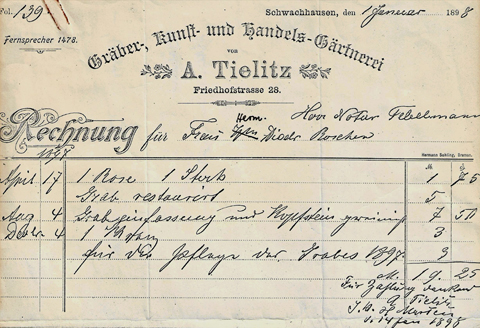 Fol. 139
Schwachhausen, den 1 Januar 1898
Fernsprecher 1478.
Gräber-, Kunst- und Handels-Gärtnerei
von
A. Tielitz
Friedhofstrasse 28.
Herrn Notar
Herm.
Rechnung für Frau Diedr. Boschen
Hermann Sehling, Bremen.
1897
April 17 1 Rose 1 Sterb 1 75
Grab restaurirt 5
Aug 4 Grabeinfassung und Kopfstein 7 50
Decbr 4 1 3
für die Pflege des Grabes 1897 3
M. 19.25
Für Zahlung dankend
A Tielitz
14 Jan 1898